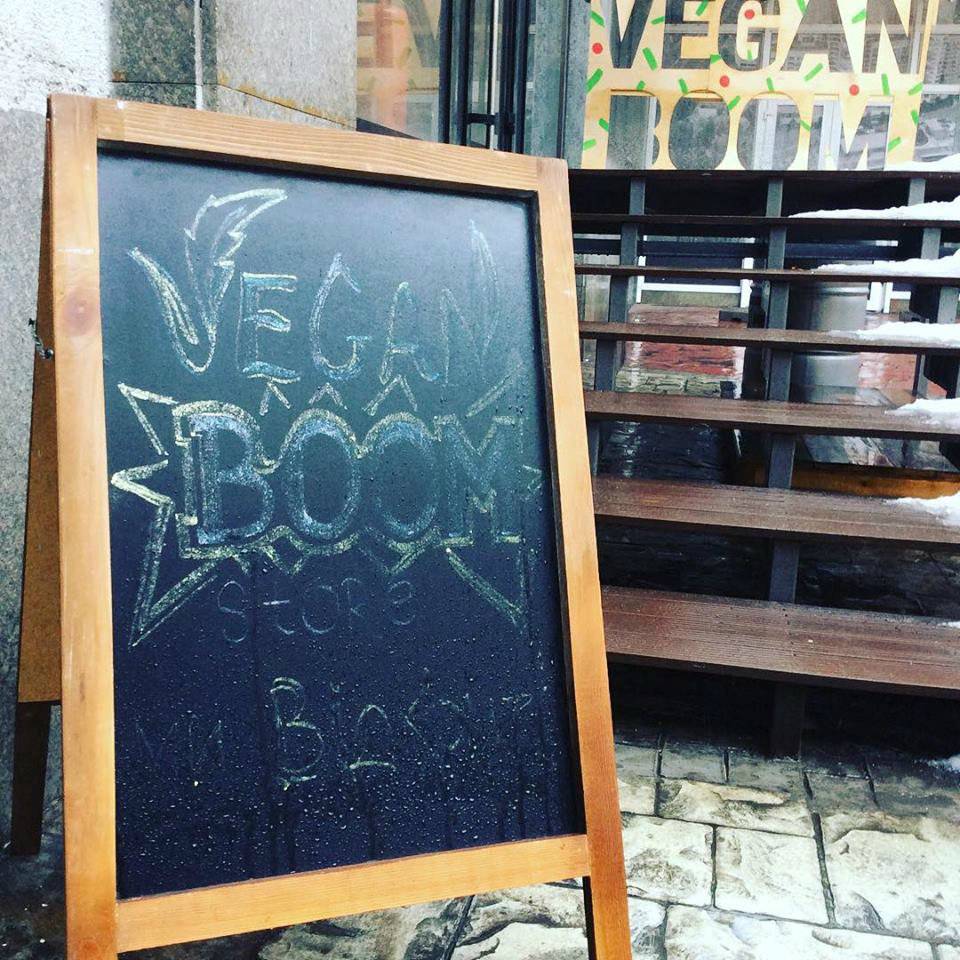 VEGAN
BOOM
VEGAN
BOOM
store
ми